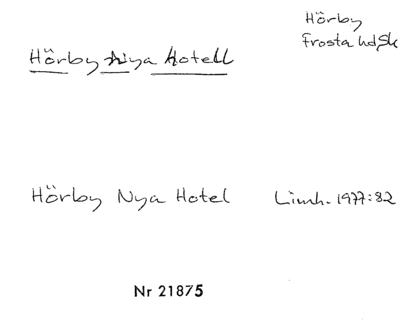 Hörby
Frosta hd, Sk
Hörby Nya Hotell
Hörby Nya Hotel
Limh. 1977:82
Nr 21875